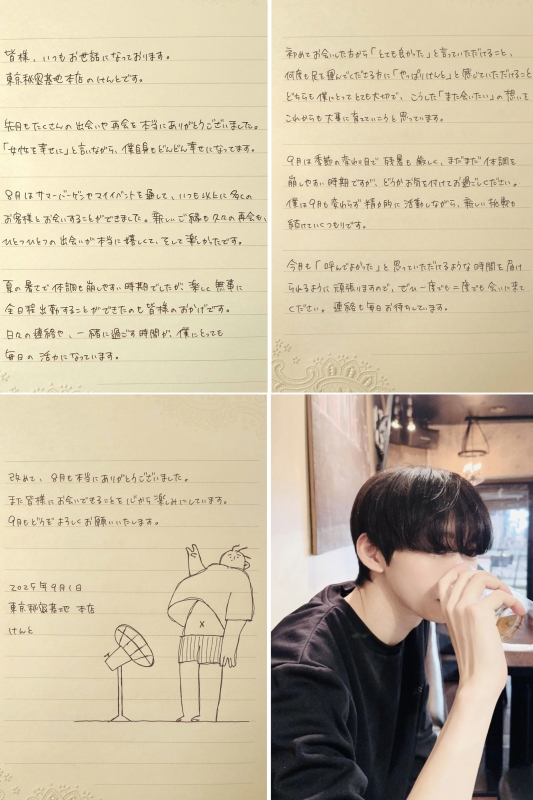 皆様、いつもお世話になっております。
東京秘密基地本店のけんとです。
先月もたくさんの出会いや再会を本当にありがとうございました。
「女性を幸せに」と言いながら、僕自身もどんどん幸せになってます。
8月はサマーバーゲンやマイイベントを通して、いつも以上に多くの
お客様とお会いすることができました。新しいご縁も久々の再会も、
ひとつひとつの出会いが本当に嬉しくて、そして楽しかったです。
夏の暑さで体調も崩しやすい時期でしたが、楽しく無事に
全日程出勤することができたのも皆様のおかげです。
日々の連絡や、一緒に過ごす時間が、僕にとっても
毎日の活力になっています。
初めてお会いした方から「とても良かった」と言っていただけること、
何度も足を運んでくださる方に「やっぱりけんと」と感じていただけること
どちらも僕にとってとても大切で、こうした「また会いたい」の想いを
これからも大事に育てていこうと思っています。
9月は季節の変わり目で残暑も厳しく、まだまだ体調を
崩しやすい時期ですが、どうかお気を付けてお過ごしください。
僕は9月も変わらず精力的に活動しながら、新しい挑戦も
続けていくつもりです。
今月も「呼んでよかった」と思っていただけるような時間を届け
られるように頑張りますので、ぜひ一度でも二度でも会いに来て
ください。連絡も毎日お待ちしています。
改めて、8月も本当にありがとうございました。
また皆様にお会いできることを心から楽しみにしています。
9月もどうぞよろしくお願いいたします。
2025年9月1日
東京秘密基地 本店
けんと